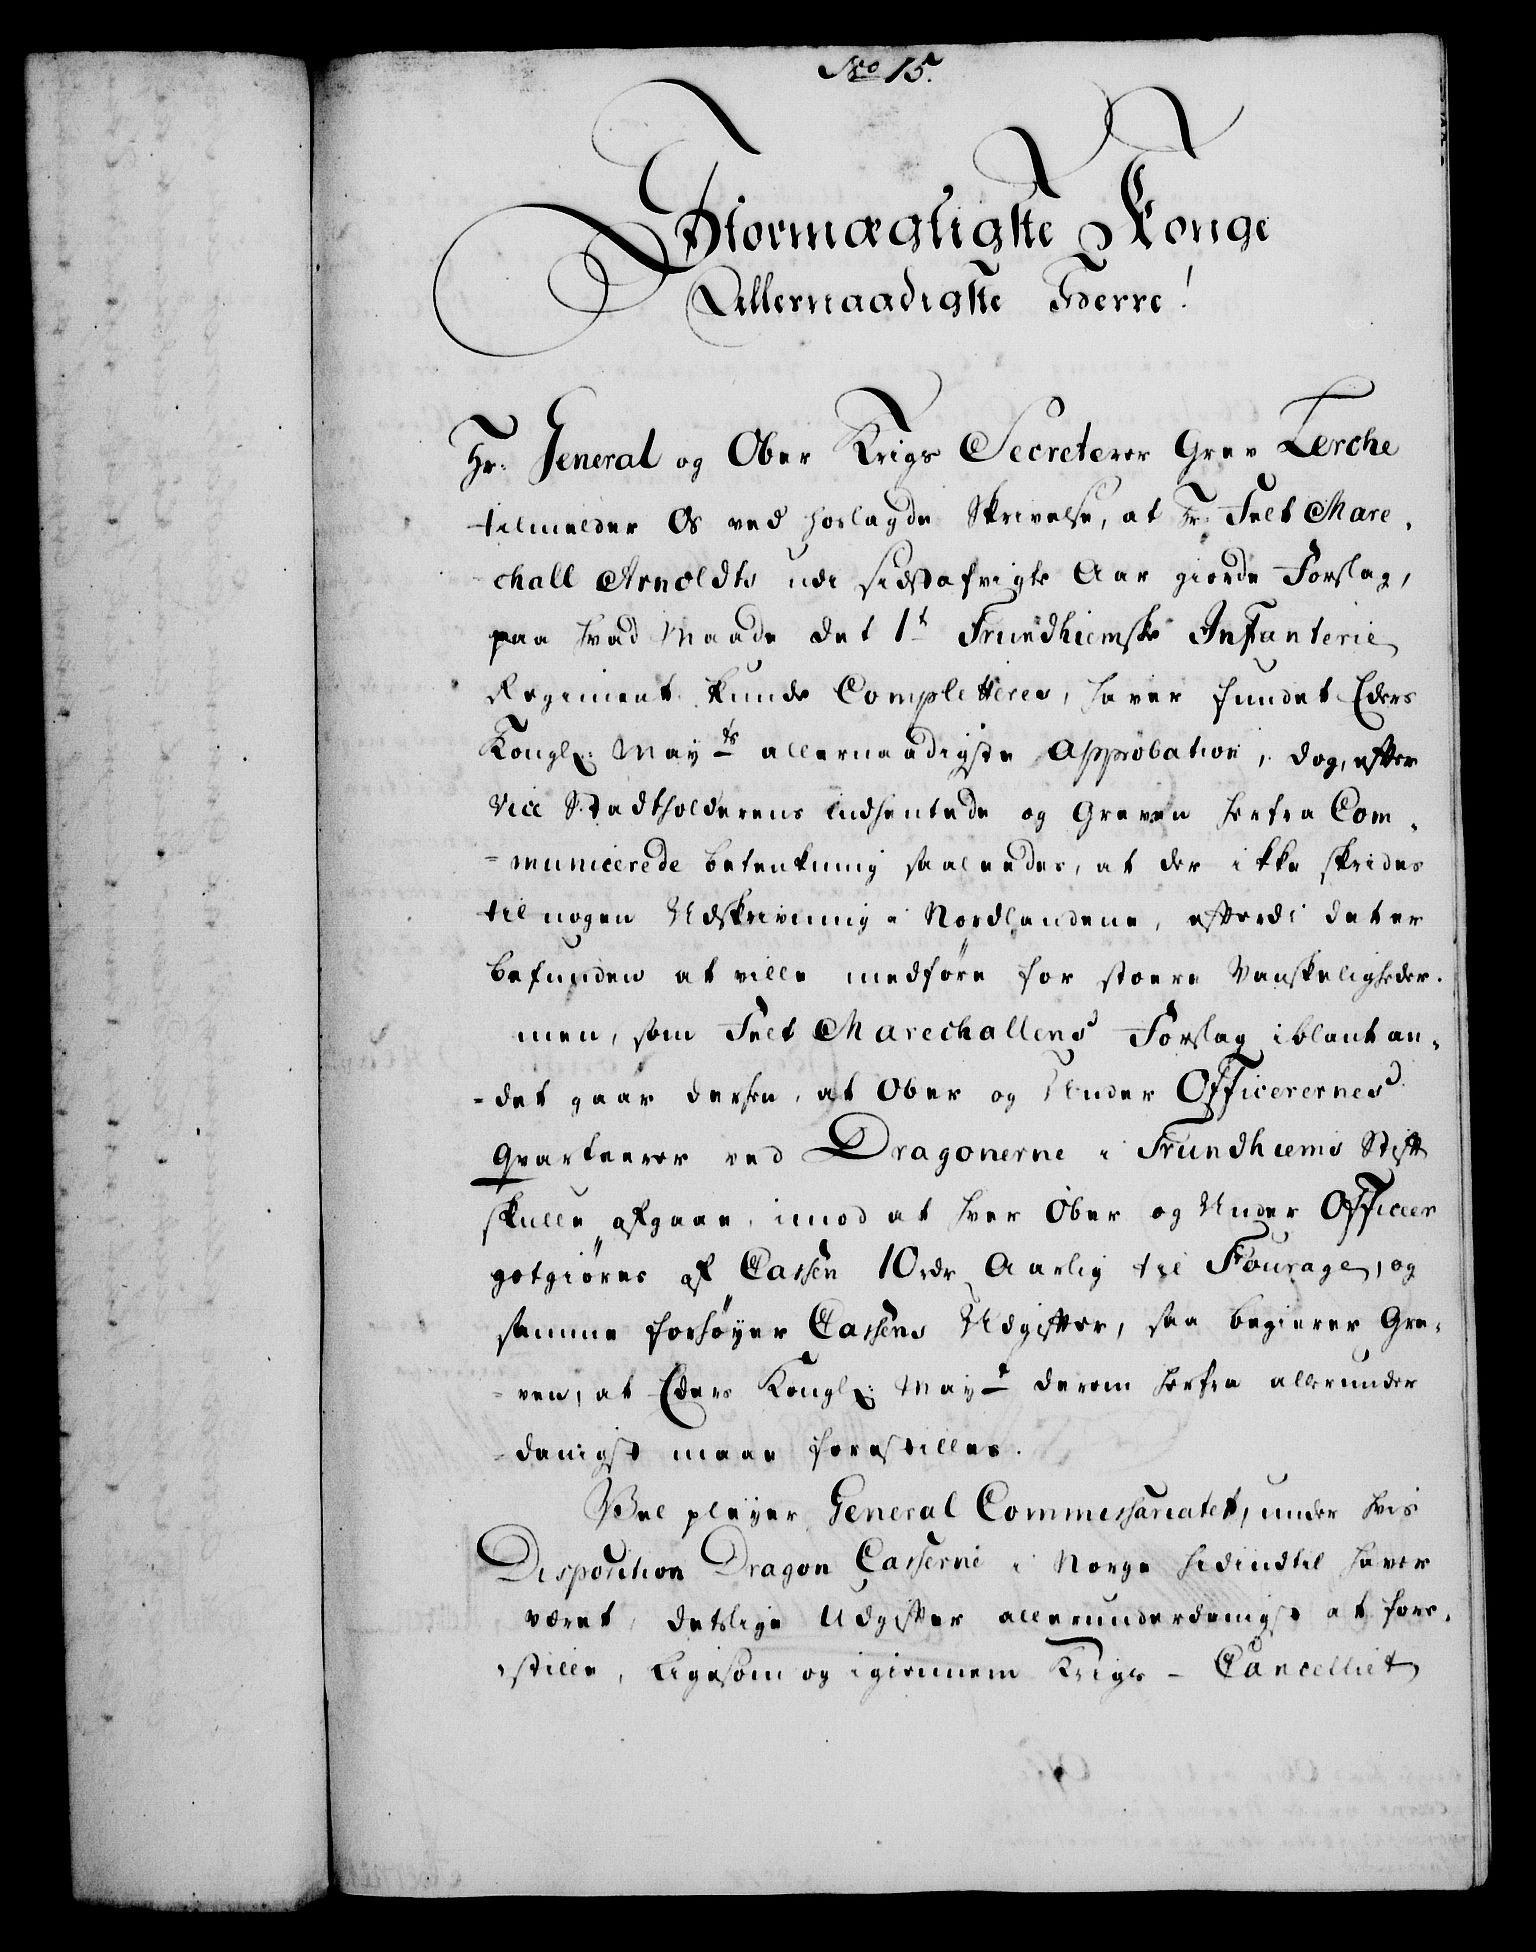 No 15.
Stormægtigste Konge
Allernaadigste Herre!
Hr: General og Ober Krigs Secreterer Grev Lerche
tilmelder Os ved hoslagde Skrivelse, at Hr: Felt Mare,
chall Arnoldts udi sidstafvigte Aar giorde Forslag,
paa hvad Maade det 1t Trundhiemske Infanterie
Regiment kunde Completteres, haver fundet Eders
Kongl: May ts allernaadigste Approbation, dog, efter
Vice Stadtholderens indhentede og Greven herfra Com,
=municerede betenkning saaleedes, at der ikke skrides
til nogen Udskrivning i Nordlandene, efterdi det er
befunden at ville medføre for stoere Vanskeligheder.
men, som Felt Marechallens Forslag iblant an,
-det gaar derhen, at Ober og Under Officerernes
Qvarteerer ved Dragonerne i Trundhiems Stift
skulle afgaae, imod at hver Ober og Under Officier
gotgiøres af Cassen 10 rdr Aarlig til Fourage, og
samme forhøyer Cassens Udgifter, saa begierer Gre,
-ven, at Eders Kongl: May t derom herfra allerunder
-danigst maae forestilles.
Vel pleyer General Commissariatet, under hvis
Disposition Dragon Casserne i Norge hidindtil haver
været, deslige Udgifter allerunderdanigst at fore,
,stille, ligesom og igiennem Krigs - Cancelliet